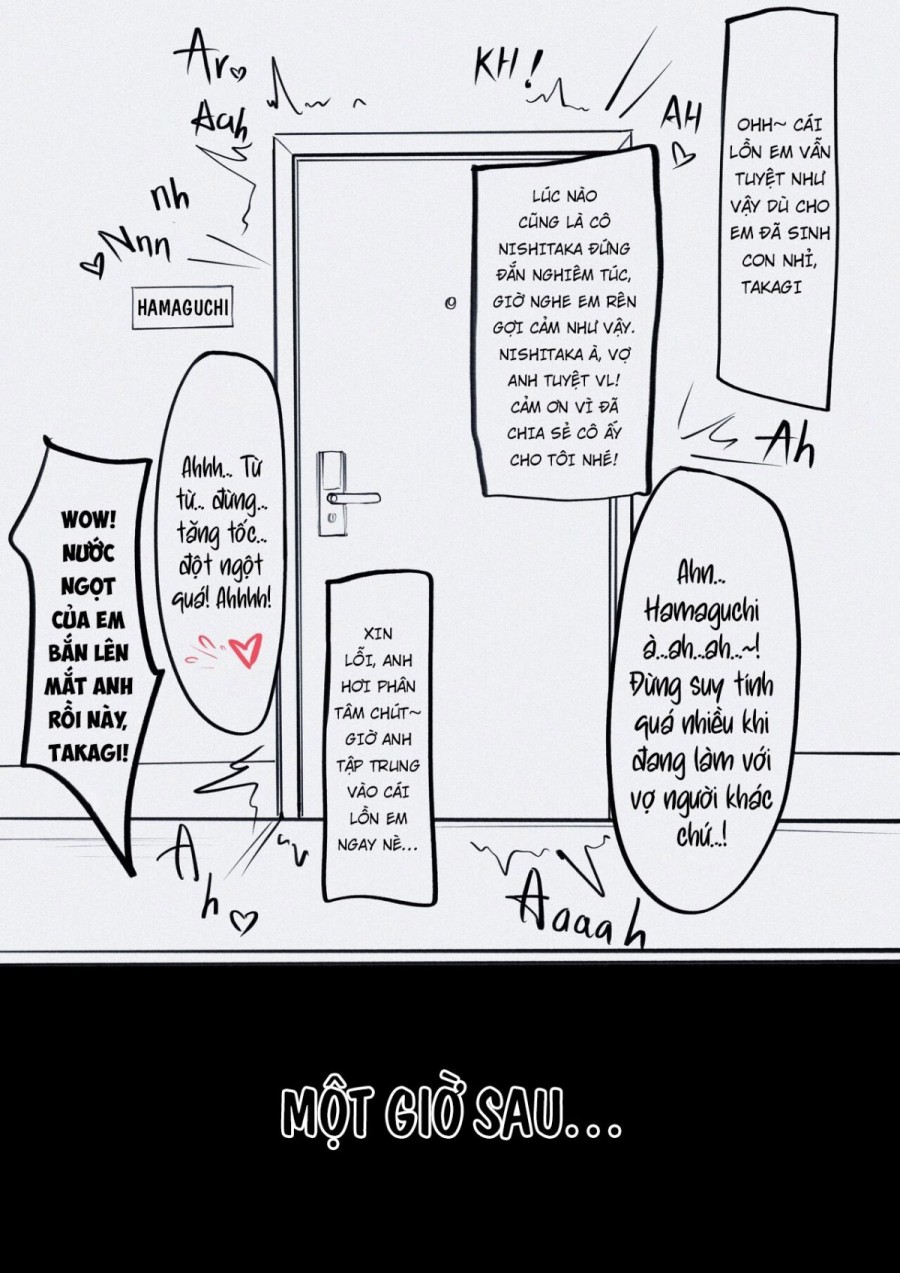 OHH~ CÁI
LỒN EM VẪN
TUYỆT NHƯ
VẬY DÙ CHO
EM ĐÃ SINH
CON NHỈ,
TAKAGI
KH!
AH
Ar
Aah
nh
Nnn
LÚC NÀO
CŨNG LÀ CÔ
NISHITAKA ĐỨNG
ĐẮN NGHIÊM TÚC,
GIỜ NGHE EM RÊN
GỢI CẢM NHƯ VẬY.
NISHITAKA À, VỢ
ANH TUYỆT VL!
CẢM ƠN VÌ ĐÃ
CHIA SẺ CÔ ẤY
CHO TÔI NHÉ!
HAMAGUCHI
Ah
Ahhh... Từ
từ... đừng...
tăng tốc...
đột ngột
quá! Ahhhh!
WOW!
NƯỚC
NGỌT
CỦA EM
BẮN LÊN
MẮT ANH
RỒI NÀY,
TAKAGI!
Ahn...
Hamaguchi
à...ah...ah...~!
Đừng suy tính
quá nhiều khi
đang làm với
vợ người khác
chứ...!
XIN
LỖI, ANH
HƠI PHÂN
TÂM CHÚT~
GIỜ ANH
TẬP TRUNG
VÀO CÁI
LỒN EM
NGAY NÈ...
A
h
Aaaah
MỘT GIỜ SAU...